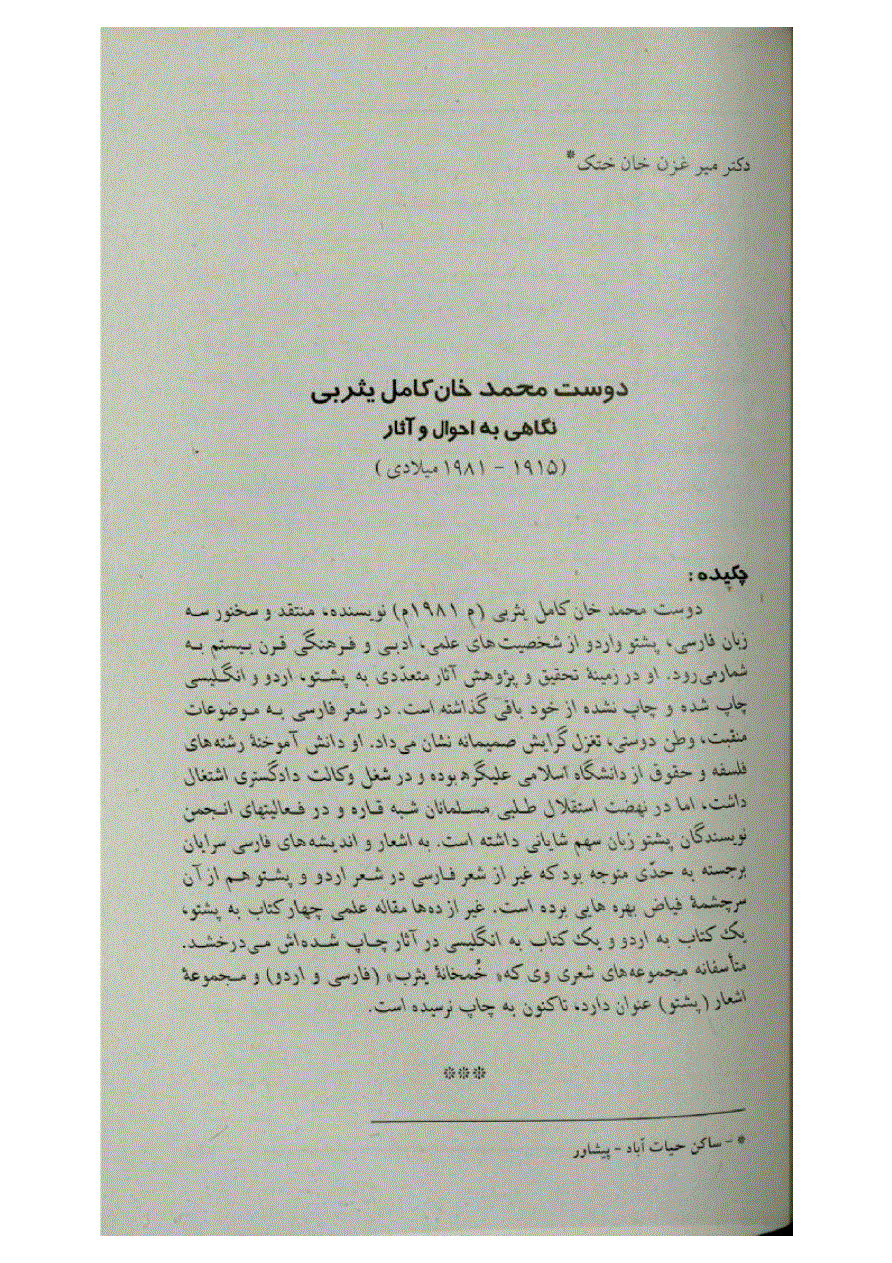 دکتر میر غزن خان ختک*
دوست محمد خان کامل یثربی
نگاهی به احوال و آثار
(۱۹۱۵ - ۱۹۸۱ میلادی)
چکیده:
دوست محمد خان کامل یثربی (م ۱۹۸۱م) نویسنده، منتقد و سخنور سه
زبان فارسی، پشتو واردو از شخصیت‌های علمی، ادبی و فرهنگی قرن بیستم به
شمارمی‌رود. او در زمینهٔ تحقیق و پژوهش آثار متعدّدی به پشتو، اردو و انگلیسی
چاپ شده و چاپ نشده از خود باقی گذاشته است. در شعر فارسی به موضوعات
منقبت، وطن دوستی، تغزل گرایش صمیمانه نشان می‌داد. او دانش آموختهٔ رشته‌های
فلسفه و حقوق از دانشگاه اسلامی علیگره بوده و در شغل وکالت دادگستری اشتغال
داشت، اما در نهضت استقلال طلبی مسلمانان شبه قاره و در فعالیتهای انجمن
نویسندگان پشتو زبان سهم شایانی داشته است. به اشعار و اندیشه‌های فارسی سرایان
برجسته به حدّی متوجه بود که غیر از شعر فارسی در شعر اردو و پشتو هم از آن
سرچشمهٔ فیاض بهره هایی برده است. غیر از ده‌ها مقاله علمی چهار کتاب به پشتو،
یک کتاب به اردو و یک کتاب به انگلیسی در آثار چاپ شده‌اش می‌درخشد.
متأسفانه مجموعه‌های شعری وی که« خُمخانهٔ یثرب» (فارسی و اردو) و مجموعهٔ
اشعار (پشتو) عنوان دارد، تاکنون به چاپ نرسیده است.
***
* - ساکن حیات آباد - پیشاور